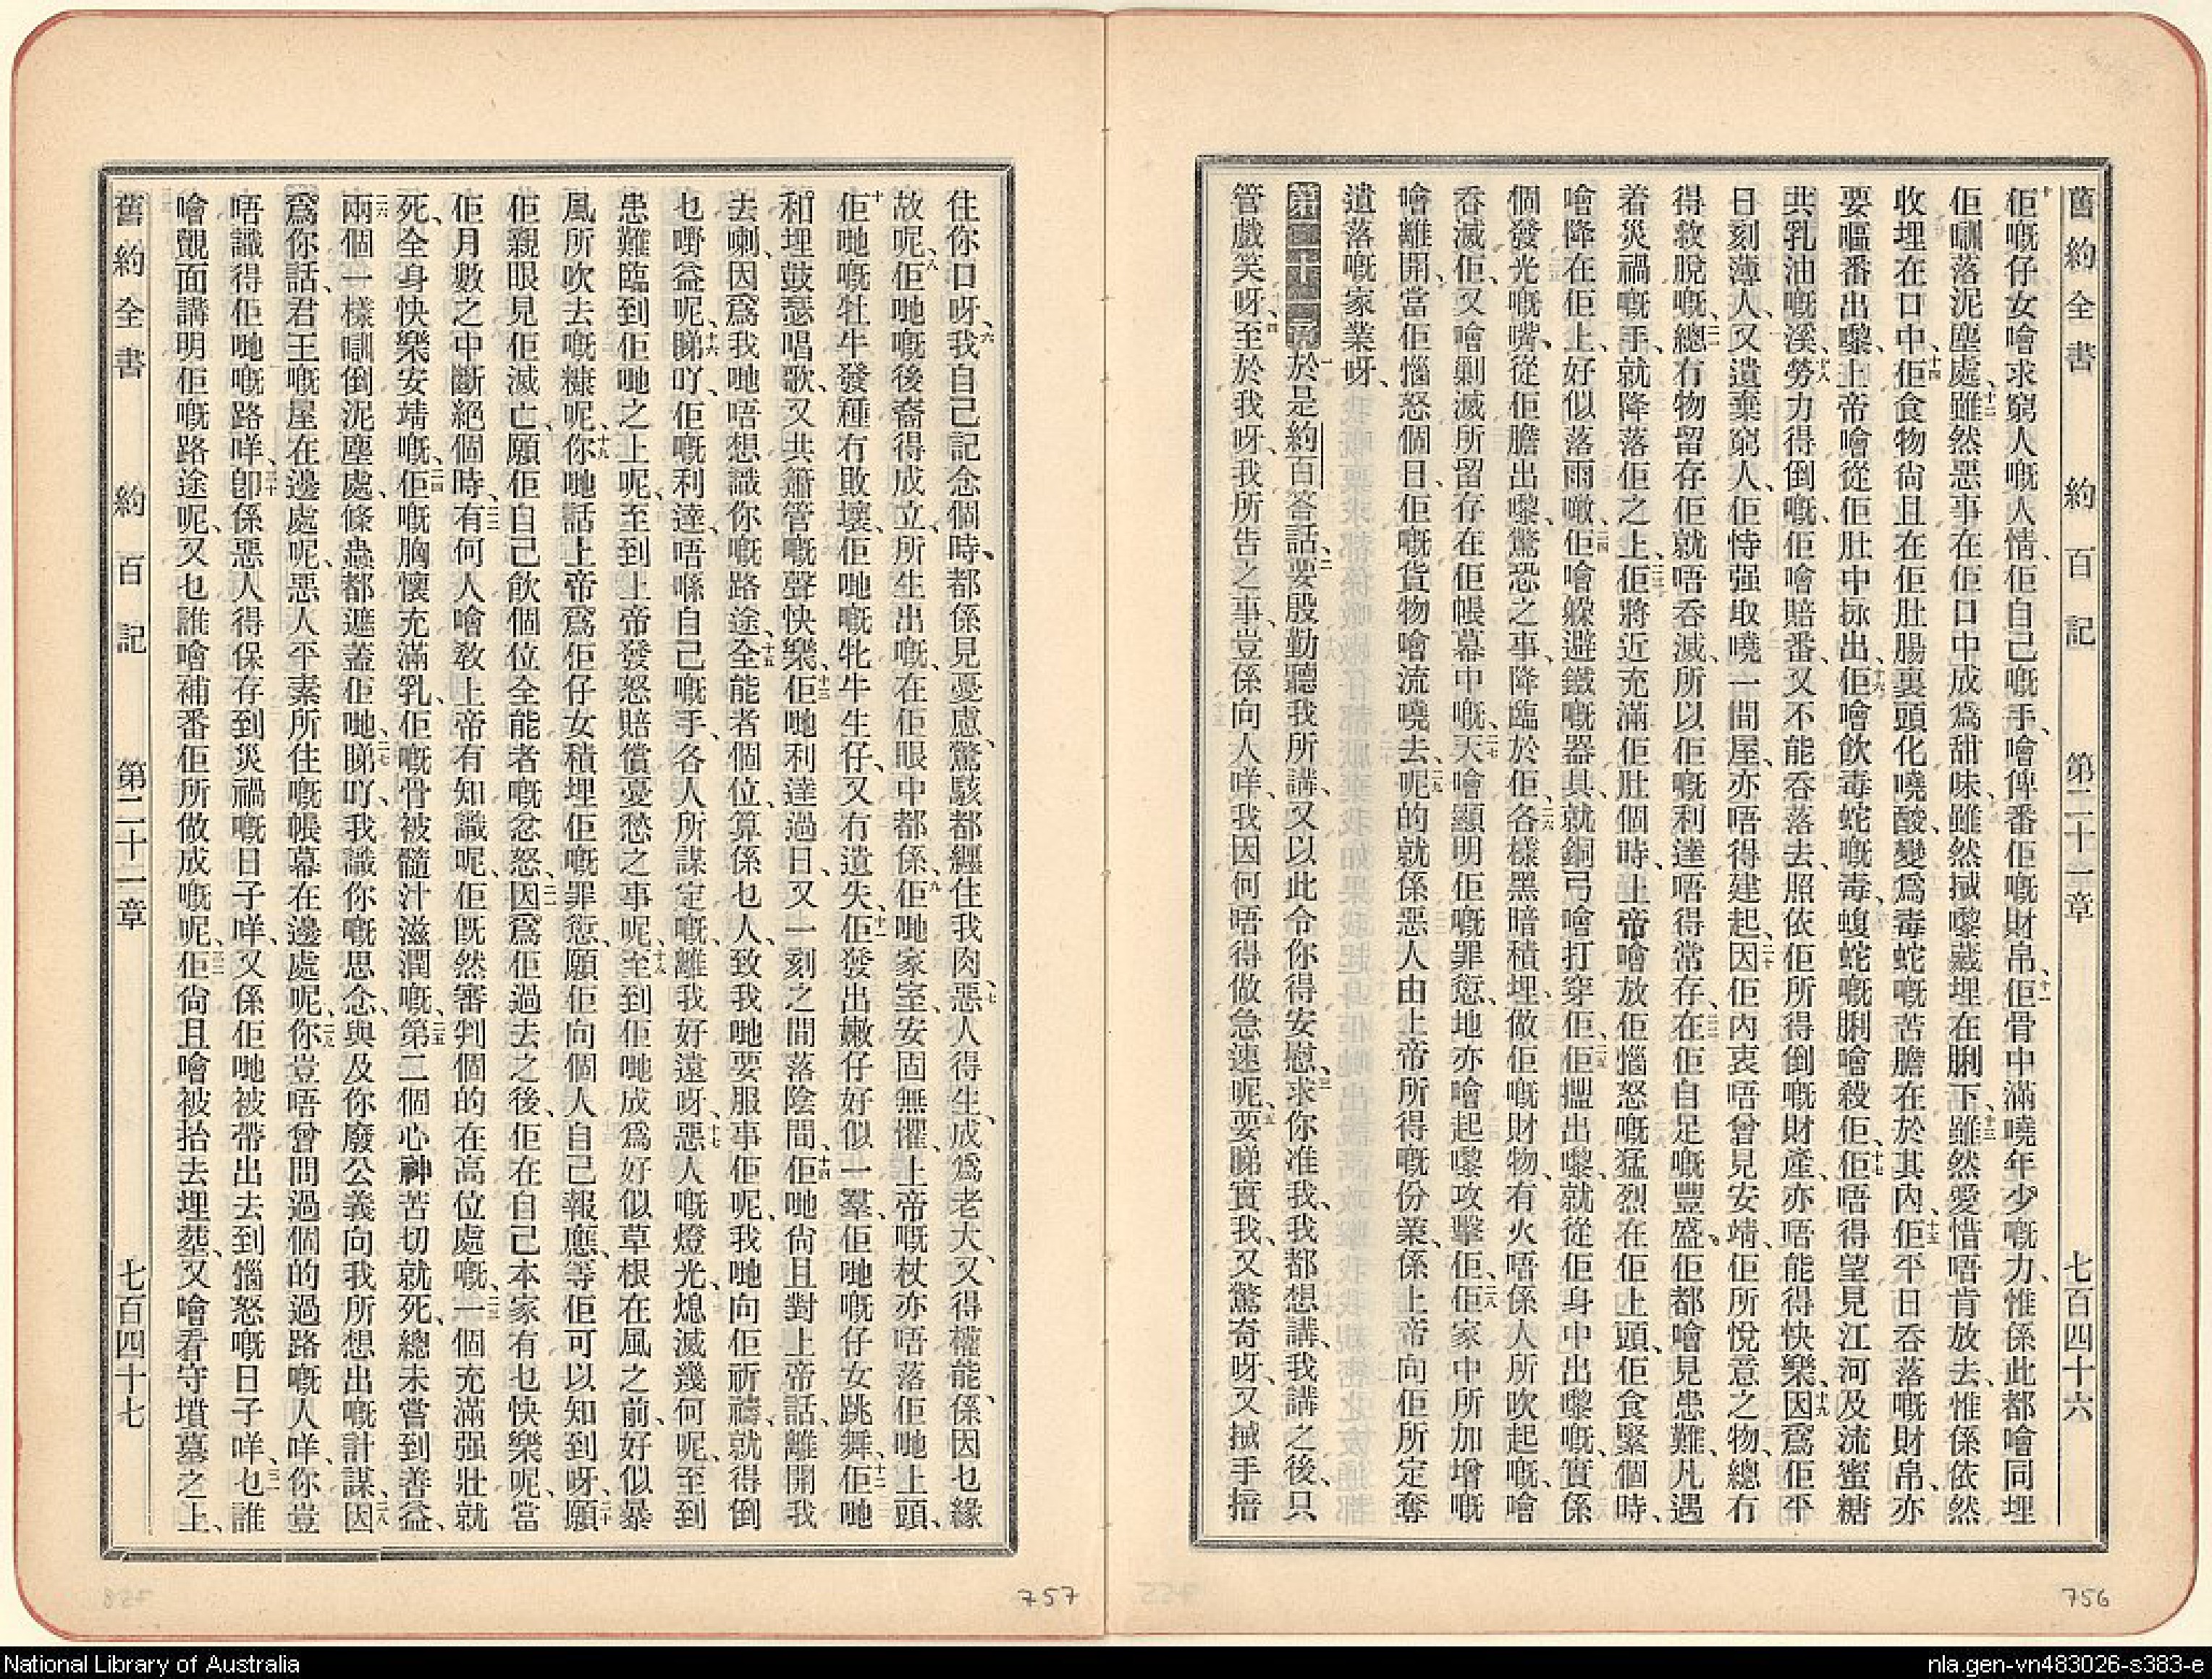 舊約全書 約百記 第二十一章 七百四十六
十佢嘅仔女噲求窮人嘅人情、佢自己嘅手、噲俾番佢嘅財帛、十一佢骨中滿嘵年少嘅力、惟係此都噲同埋
佢瞓落泥塵處、十二雖然惡事在佢口中成爲甜味、雖然搣嚟藏埋在脷下、十三雖然愛惜唔肯放去、惟係依然
收埋在口中、十四佢食物尙且在佢肚腸裏頭化嘵酸、變爲毒蛇嘅苦膽在於其內、十五佢平日呑落嘅財帛、亦
要嘔番出嚟、上帝噲從佢肚中拯出、十六佢噲飲毒蛇嘅毒、蝮蛇嘅脷噲殺佢、十七佢唔得望見江河及流蜜糖
共乳油嘅溪、十八勞力得倒嘅、佢噲賠番、又不能呑落去、照依佢所得倒嘅財產、亦唔能得快樂、十九因爲佢平
日刻薄人、又遺棄窮人、佢恃强取嘵一間屋、亦唔得建起、二十因佢內衷唔曾見安靖、佢所悅意之物、總冇
得救脫嘅、二一總冇物留存佢就唔呑滅、所以佢嘅利達唔得常存、二二在佢自足嘅豐盛、佢都噲見患難、凡遇
着災禍嘅手、就降落佢之上、二三佢將近充滿佢肚個時、上帝噲放佢惱怒嘅猛烈在佢上頭、佢食緊個時、
噲降在佢上、好似落雨噉、二四佢噲躲避鐵嘅器具、就銅弓噲打穿佢、二五佢搵出嚟、就從佢身中出嚟嘅、實係
個發光嘅嘴、從佢膽出嚟、驚恐之事、降臨於佢、二六各樣黑暗積埋、做佢嘅財物、有火唔係人所吹起嘅、噲
呑滅佢、又噲剿滅所留存在佢帳幕中嘅、二七天噲顯明佢嘅罪愆、地亦噲起嚟攻擊佢、二八佢家中所加增嘅
噲離開、當佢惱怒個日、佢嘅貨物噲流嘵去、二九呢的就係惡人由上帝所得嘅份業、係上帝向佢所定奪
遺落嘅家業呀、
第二十一章 一於是約百答話、二要殷勤聽我所講、又以此令你得安慰、三求你准我、我都想講、我講之後、只
管戲笑呀、四至於我呀、我所告之事、豈係向人咩、我因何唔得做急速呢、五要睇實我、又驚奇呀、又搣手揞
住你口呀、六我自己記念個時、都係見憂慮、驚駭都纒住我肉、七惡人得生、成爲老大、又得權能、係因乜緣
故呢、八佢哋嘅後裔得成立、所生出嘅、在佢眼中都係、九佢哋家室、安固無懼、上帝嘅杖亦唔落佢哋上頭、
十佢哋嘅牡牛發種冇敗壞、佢哋嘅牝牛生仔、又冇遺失、十一佢發出嫩仔好似一羣、佢哋嘅仔女跳舞、十二佢哋
和埋鼓瑟唱歌、又共簫管嘅聲快樂、十三佢哋利達過日、又一刻之間落陰間、十四佢哋尙且對上帝話、離開我
去喇、因爲我哋唔想識你嘅路途、十五全能者個位、算係乜人、致我哋要服事佢呢、我哋向佢祈禱、就得倒
乜嘢益呢、十六睇吖、佢嘅利達、唔喺自己嘅手、各人所謀定嘅、離我好遠呀、十七惡人嘅燈光、熄滅幾何呢、至到
患難臨到佢哋之上呢、至到上帝發怒賠償憂愁之事呢、十八至到佢哋成爲好似草根在風之前、好似暴
風所吹去嘅糠呢、十九你哋話上帝爲佢仔女積埋佢嘅罪愆、願佢向個人自己報應、等佢可以知到呀、二十願
佢親眼見佢滅亡、願佢自己飲個位全能者嘅忿怒、二一因爲佢過去之後、佢在自己本家有乜快樂呢、當
佢月數之中斷絕個時、二二有何人噲敎上帝有知識呢、佢既然審判個的在高位處嘅、二三一個充滿强壯就
死、全身快樂安靖嘅、二四佢嘅胸懷充滿乳、佢嘅骨被髓汁滋潤嘅、二五第二個心神苦切就死、總未嘗到善益、
二六兩個一樣瞓倒泥塵處、條蟲都遮蓋佢哋、二七睇吖、我識你嘅思念、與及你廢公義向我所想出嘅計謀、二八因
爲你話、君王嘅屋在邊處呢、惡人平素所住嘅帳幕在邊處呢、二九你豈唔曾問過個的過路嘅人咩、你豈
唔識得佢哋嘅路咩、三十卽係惡人得保存到災禍嘅日子咩、又係佢哋被帶出去到惱怒嘅日子咩、三一乜誰
噲覿面講明佢嘅路途呢、又乜誰噲補番佢所做成嘅呢、三二佢尙且噲被抬去埋塟、又噲看守墳墓之上、
舊約全書 約百記 第二十一章 七百四十七
757
756
National Library of Australia
nla.gen-vn483026-s383-e